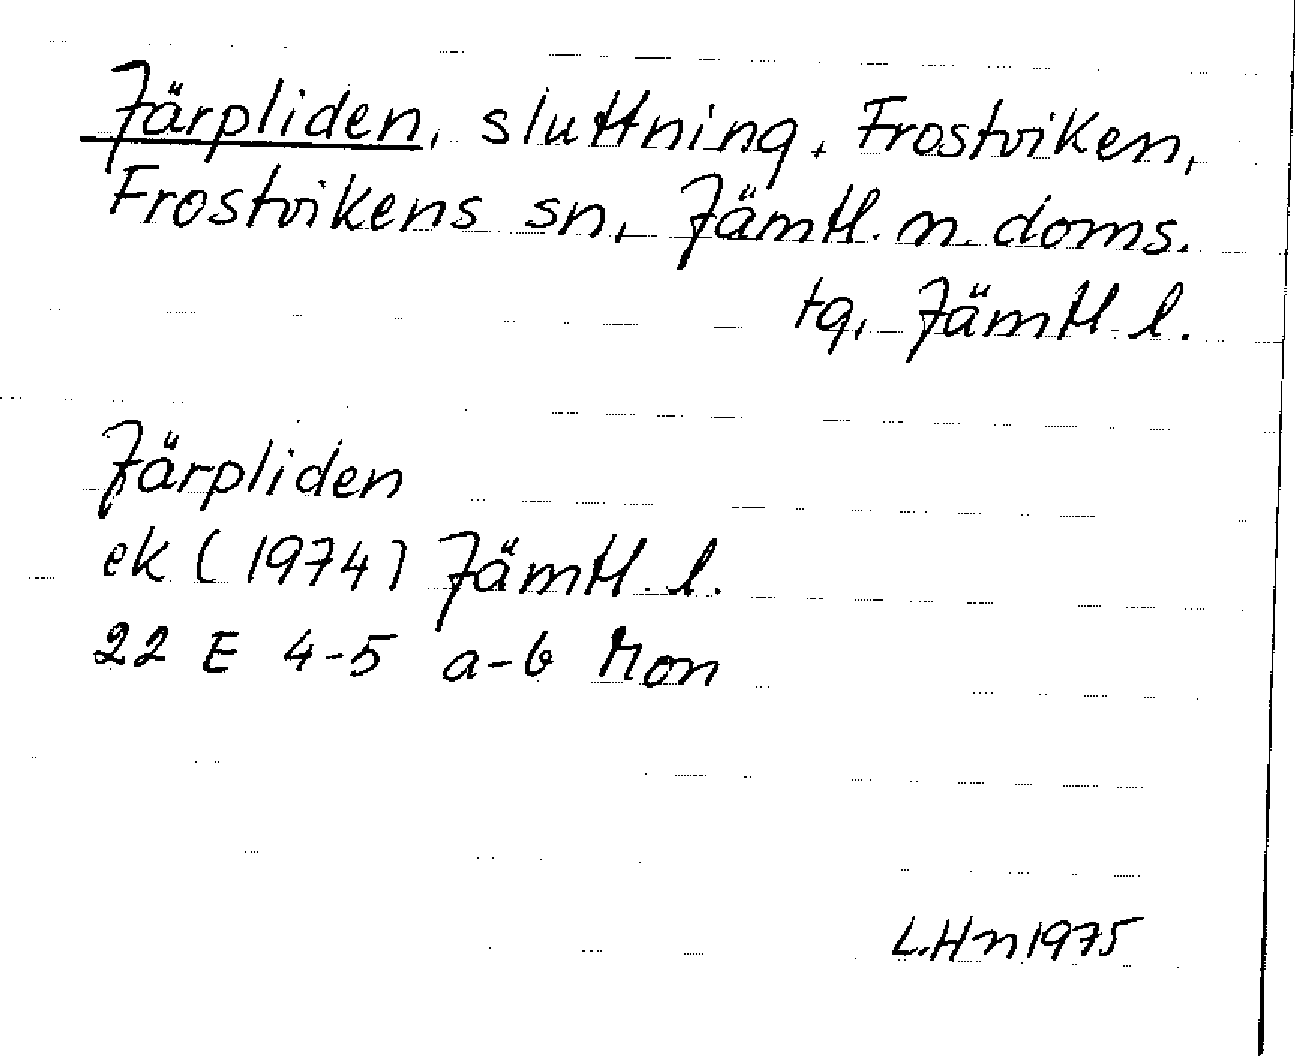 Järpliden, sluttning. Frostviken,
Frostvikens sn, Jämtl. n. doms.
tg, Jämtl. l.
Järpliden
ek (1974) Jämtl. l.
22 E 4-5 a-b Mon
L.Hn 1975